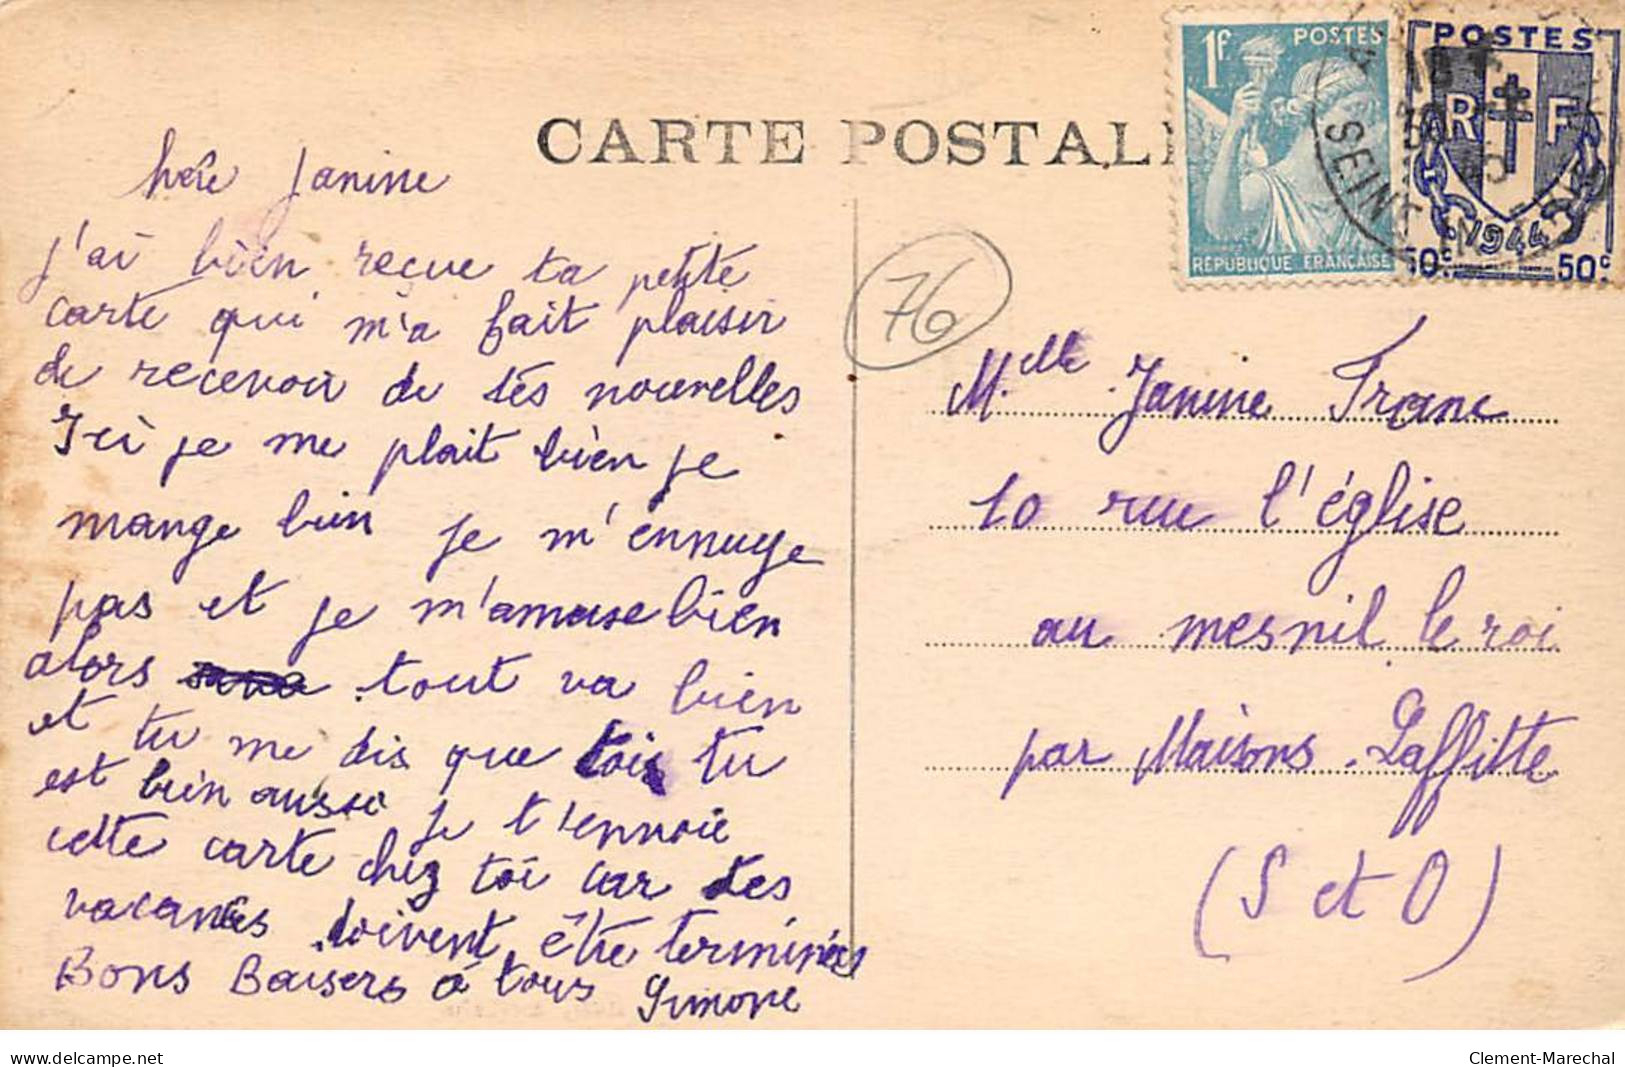 CARTE POSTAL
1F. POSTES
RÉPUBLIQUE FRANÇAISE
POSTES
R F
1944
50c 50c
SEINE
Janine
j'ai bien reçue ta petite
carte qui m'a fait plaisir
de recevoir de tés nouvelles
Ici je me plait bien je
mange bien je m'ennuye
pas et je m'amuse bien
alors tout va bien
et tu me dis que tois tu
est bien aussi je t'ennvoie
cette carte chez toi car tes
vacances doivent être terminées
Bons Baisers a tous Simone
76
Melle Janine Franc
10 rue l'église
au mesnil le roi
par Maisons-Laffitte
(S et O)
www.delcampe.net
Clement-Marechal